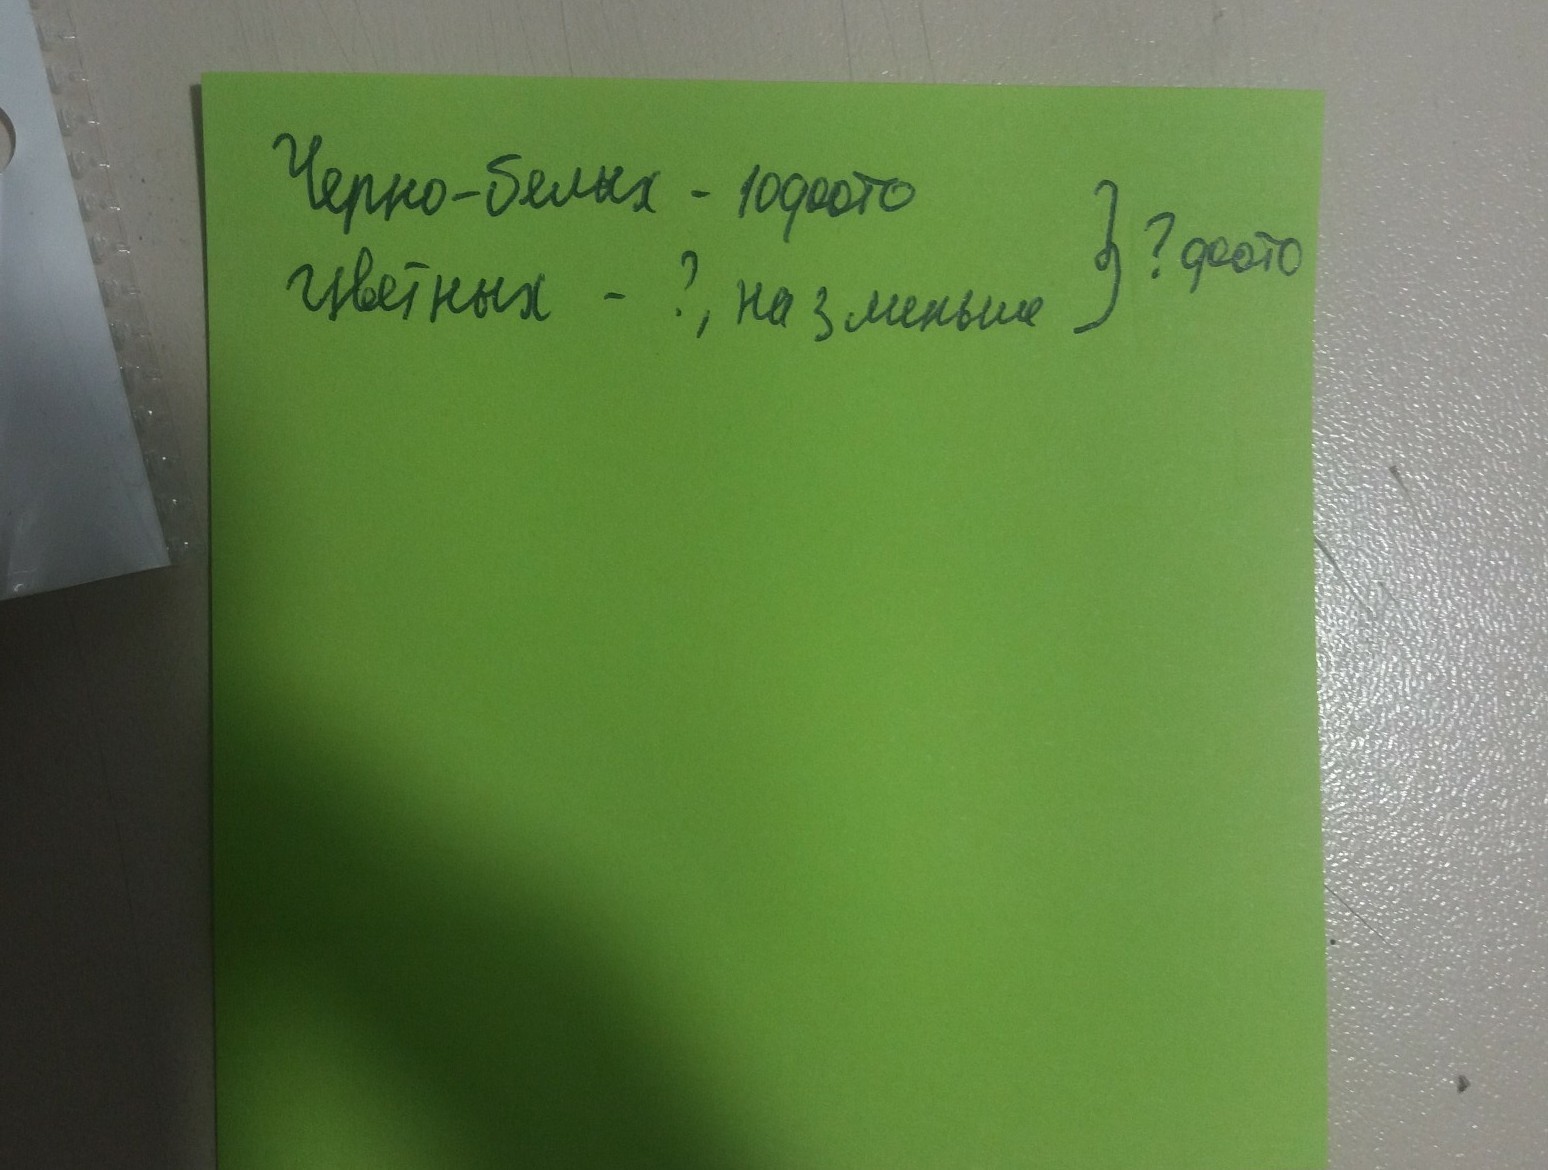 Черно-белых - 10 фото
Цветных - ?, на 3 меньше } ? фото